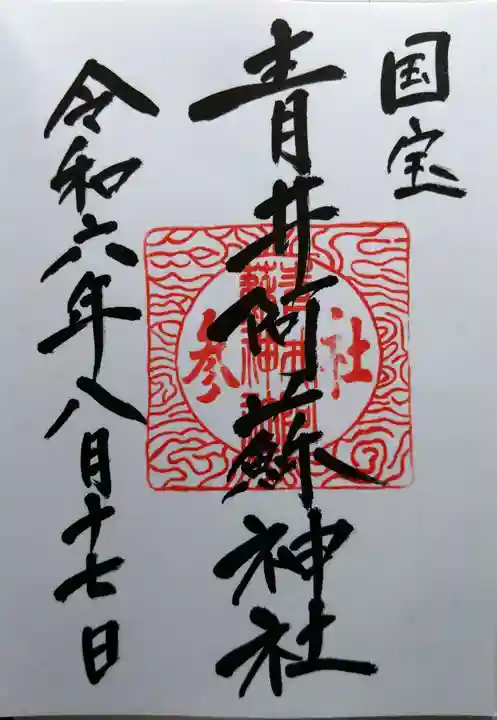 国宝
青井阿蘇神社
参社
青井阿
蘇神社
令和六年八月十七日